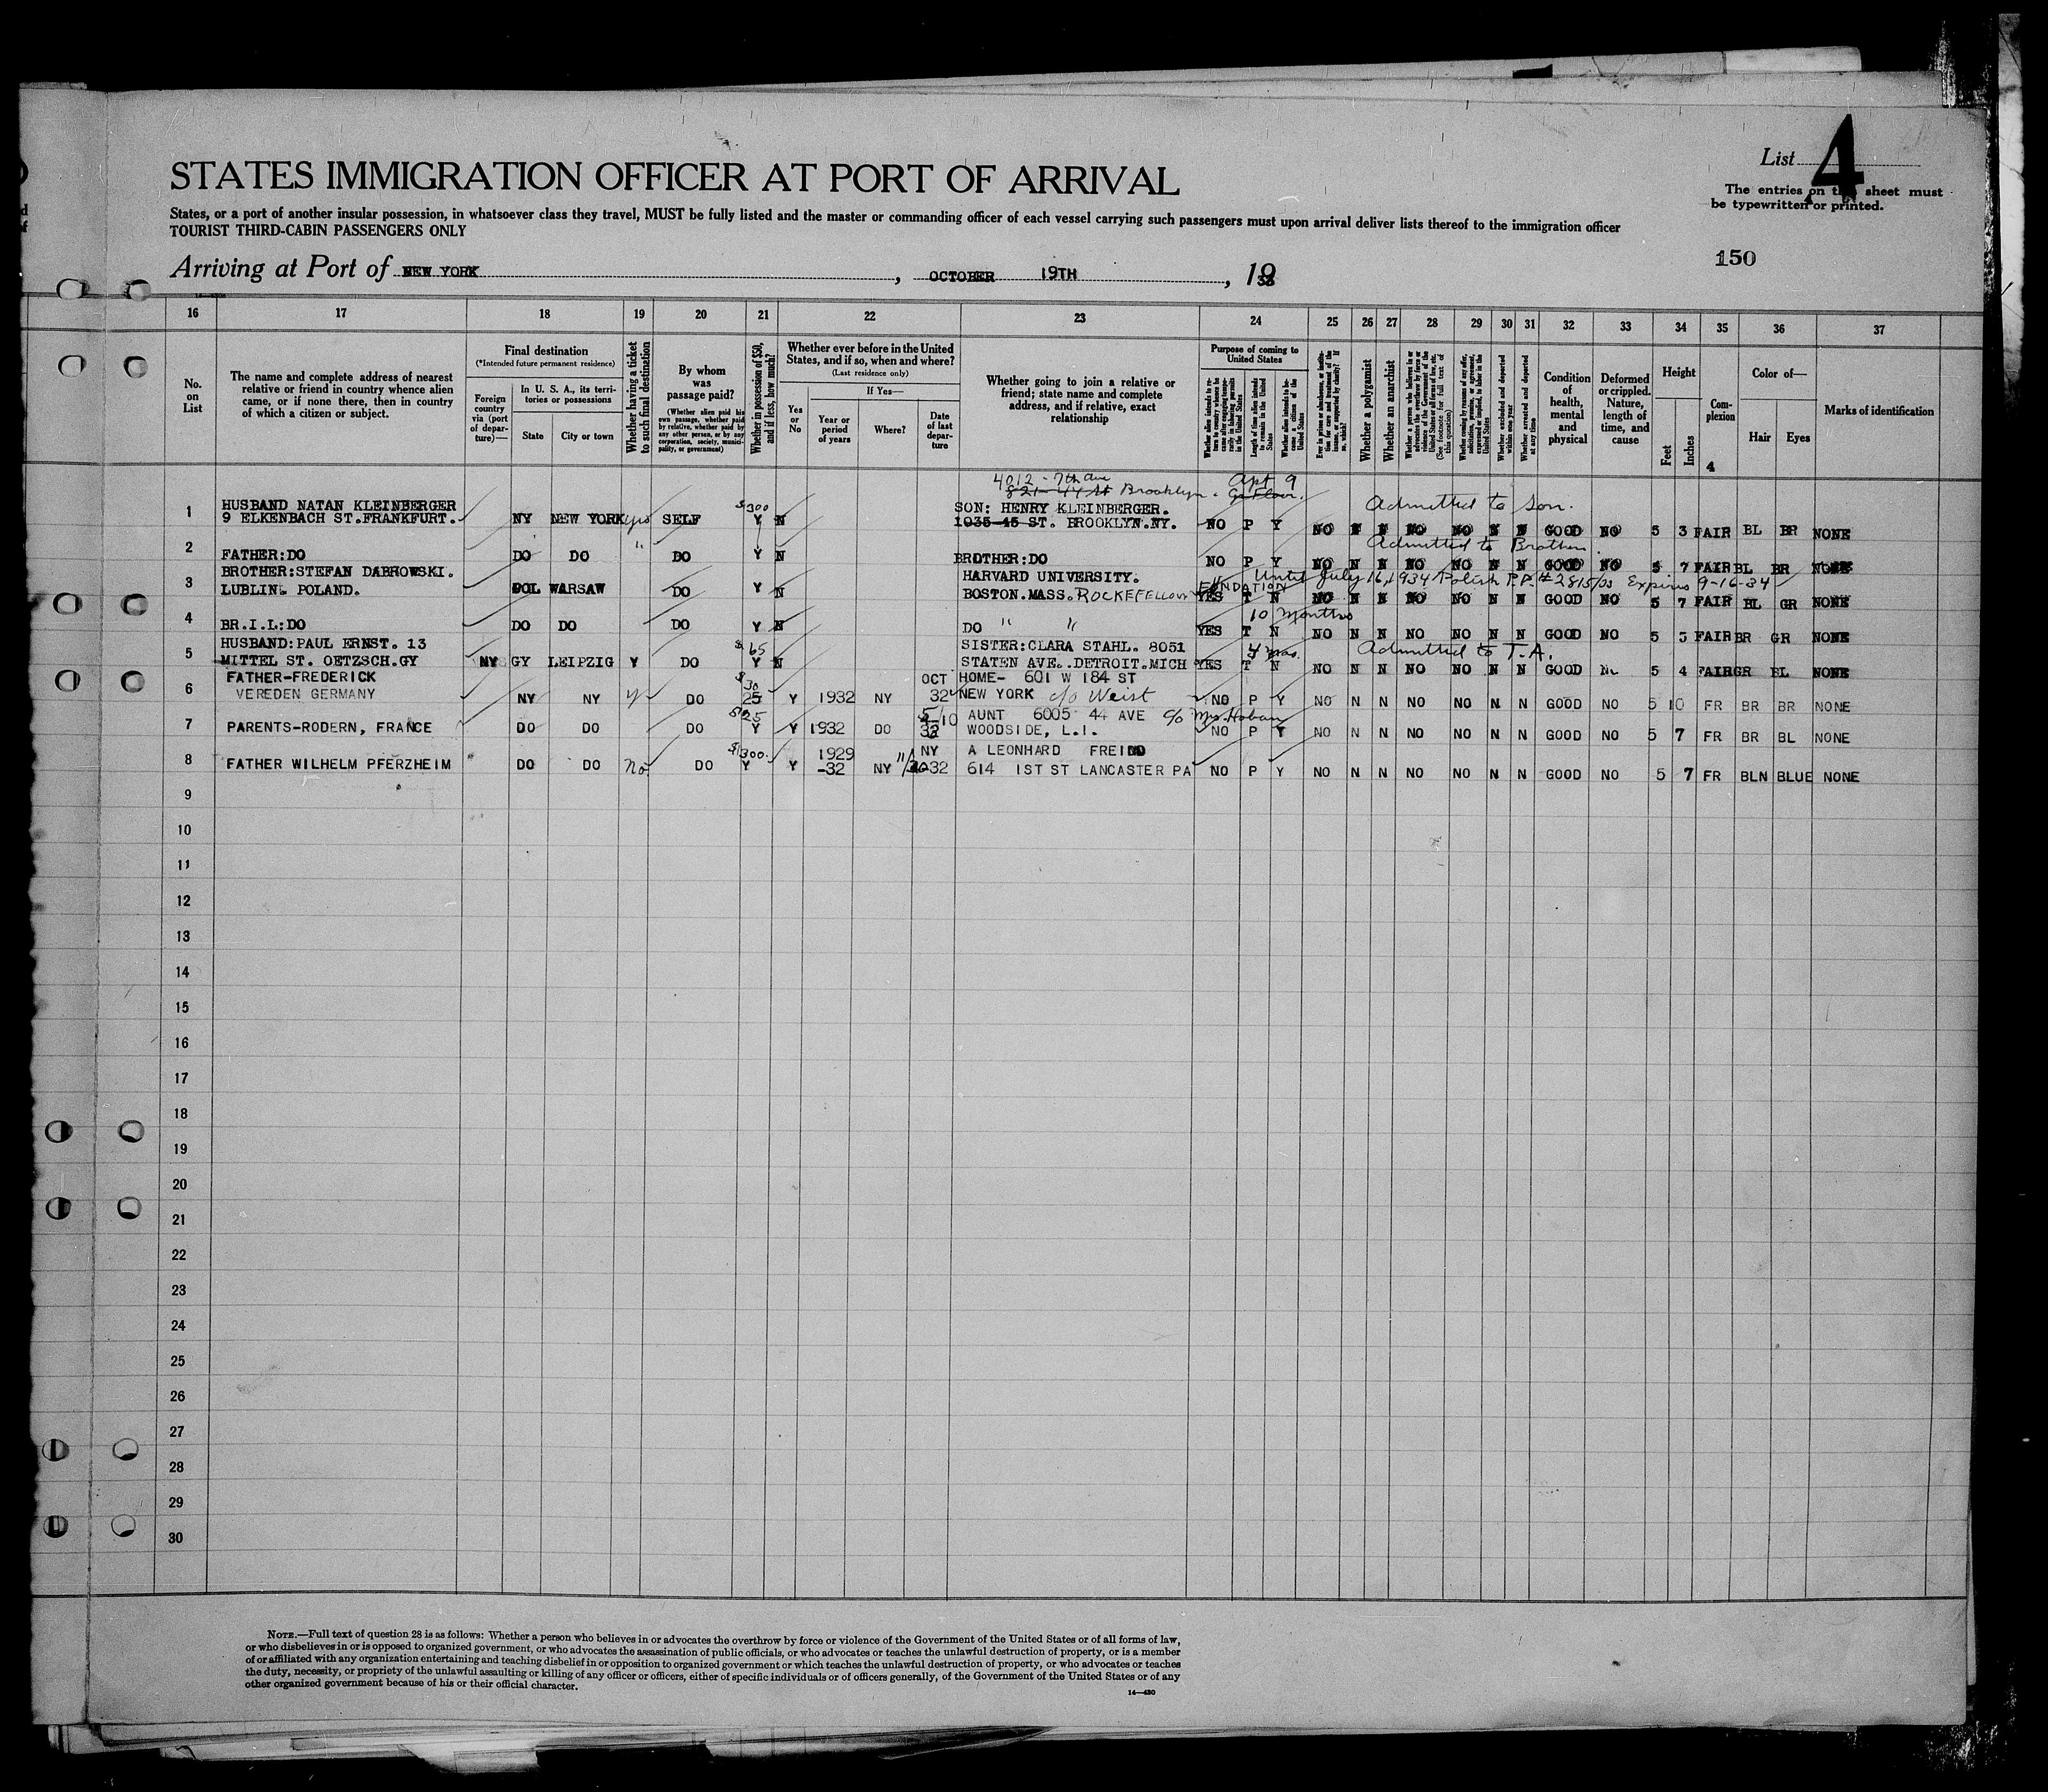 List 4
The entries on this sheet must
be typewritten or printed.
STATES IMMIGRATION OFFICER AT PORT OF ARRIVAL
States, or a port of another insular possession, in whatsoever class they travel, MUST be fully listed and the master or commanding officer of each vessel carrying such passengers must upon arrival deliver lists thereof to the immigration officer
TOURIST THIRD-CABIN PASSENGERS ONLY
150
Arriving at Port of NEW YORK, OCTOBER 19TH, 19
16 17 18 19 20 21 22 23 24 25 26 27 28 29 30 31 32 33 34 35 36 37
No. on List
The name and complete address of nearest relative or friend in country whence alien came, or if none there, then in country of which a citizen or subject.
Final destination
(*Intended future permanent residence)
Foreign country via (port of departure)—
In U. S. A., its territories or possessions
State
City or town
Whether having a ticket to such final destination
By whom was passage paid?
(Whether alien paid his own passage, whether paid by relative, whether paid by any other person, or by any corporation, society, municipality, or government)
Whether in possession of $50, and if less, how much?
Whether ever before in the United States, and if so, when and where?
(Last residence only)
Yes or No
If Yes—
Year or period of years
Where?
Date of last departure
Whether going to join a relative or friend; state name and complete address, and if relative, exact relationship
Purpose of coming to United States
Length of time alien intends to remain in the United States
Whether alien intends to become a citizen of the United States
Whether a polygamist
Whether an anarchist
(See footnote for full text of this question)
Whether excluded and deported within one year
Whether arrested and deported at any time
Condition of health, mental and physical
Deformed or crippled. Nature, length of time, and cause
Height
Feet
Inches
Complexion
4
Color of—
Hair
Eyes
Marks of identification
4012 - 7th Ave Apt 9
821-44 St Brooklyn. Gr Floor.
1 HUSBAND NATAN KLEINBERGER $300 SON: HENRY KLEINBERGER. Admitted to Son.
9 ELKENBACH ST.FRANKFURT. NY NEW YORK yes SELF Y N 1035-45 ST. BROOKLYN.NY. NO P Y NO N N NO NO N N GOOD NO 5 3 FAIR BL BR NONE
Admitted to Brother.
2 FATHER:DO DO DO " DO Y N BROTHER:DO NO P Y NO N N NO NO N N GOOD NO 5 7 FAIR BL BR NONE
3 BROTHER:STEFAN DABROWSKI. HARVARD UNIVERSITY. FUNDATION Until July 16, 1934 Polish P.P. # 2815/33 Expires 9-16-34
LUBLIN. POLAND. POL WARSAW DO Y N BOSTON.MASS. ROCKEFELLOW YES T N NO N N NO NO N N GOOD NO 5 7 FAIR BL GR NONE
10 months
4 BR.I.L:DO DO DO DO Y N DO " " YES T N NO N N NO NO N N GOOD NO 5 5 FAIR BR GR NONE
5 HUSBAND:PAUL ERNST. 13 $65 SISTER:CLARA STAHL. 8051 4 mos. Admitted to T.A.
MITTEL ST. OETZSCH.GY NY GY LEIPZIG Y DO Y N STATEN AVE..DETROIT.MICH YES T N NO N N NO NO N N GOOD NO 5 4 FAIR GR BL NONE
6 FATHER-FREDERICK $30 OCT HOME- 601 W 184 ST
VEREDEN GERMANY NY NY Y DO 25 Y 1932 NY 32 NEW YORK c/o Weist NO P Y NO N N NO NO N N GOOD NO 5 10 FR BR BR NONE
$25 AUNT 6005 44 AVE c/o Mrs Hoban
7 PARENTS-RODERN, FRANCE DO DO DO Y Y 1932 DO WOODSIDE, L.I. NO P Y NO N N NO NO N N GOOD NO 5 7 FR BR BL NONE
$300. 1929 NY A LEONHARD FREIDO
8 FATHER WILHELM PFERZHEIM DO DO No DO Y Y -32 NY 32 614 1ST ST LANCASTER PA NO P Y NO N N NO NO N N GOOD NO 5 7 FR BLN BLUE NONE
9
10
11
12
13
14
15
16
17
18
19
20
21
22
23
24
25
26
27
28
29
30
NOTE.—Full text of question 28 is as follows: Whether a person who believes in or advocates the overthrow by force or violence of the Government of the United States or of all forms of law,
or who disbelieves in or is opposed to organized government, or who advocates the assassination of public officials, or who advocates or teaches the unlawful destruction of property, or is a member
of or affiliated with any organization entertaining and teaching disbelief in or opposition to organized government or which teaches the unlawful destruction of property, or who advocates or teaches
the duty, necessity, or propriety of the unlawful assaulting or killing of any officer or officers, either of specific individuals or of officers generally, of the Government of the United States or of any
other organized government because of his or their official character.
14—430